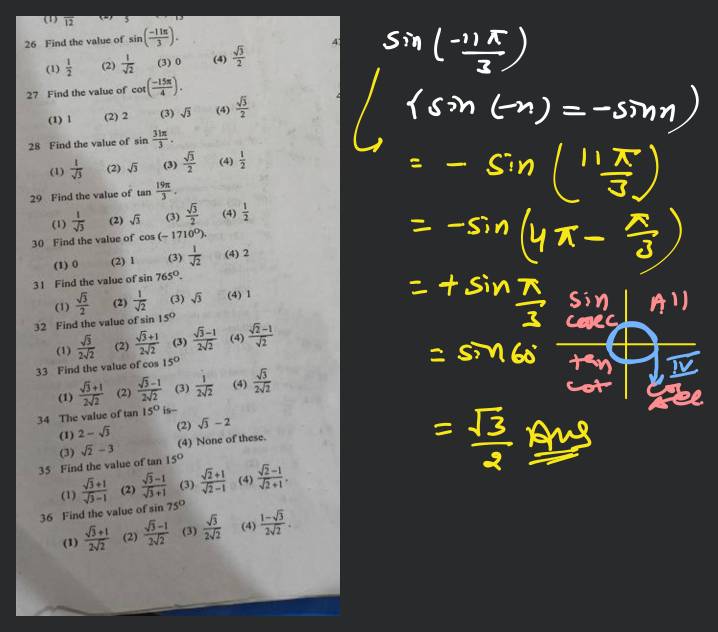 (1) π/12
26 Find the value of sin(−11π/3).
(1) 1/2 (2) 1/√2 (3) 0 (4) √3/2
27 Find the value of cot(−15π/4).
(1) 1 (2) 2 (3) √3 (4) √3/2
28 Find the value of sin 31π/3.
(1) 1/√3 (2) √3 (3) √3/2 (4) 1/2
29 Find the value of tan 19π/3.
(1) 1/√3 (2) √3 (3) √3/2 (4) 1/2
30 Find the value of cos (− 1710⁰).
(1) 0 (2) 1 (3) 1/√2 (4) 2
31 Find the value of sin 765⁰.
(1) √3/2 (2) 1/√2 (3) √3 (4) 1
32 Find the value of sin 15⁰
(1) √3/2√2 (2) √3+1/2√2 (3) √3−1/2√2 (4) √2−1/√2
33 Find the value of cos 15⁰
(1) √3+1/2√2 (2) √3−1/2√2 (3) 1/2√2 (4) √3/2√2
34 The value of tan 15⁰ is–
(1) 2 − √3 (2) √3 − 2
(3) √2 − 3 (4) None of these.
35 Find the value of tan 15⁰
(1) √3+1/√3−1 (2) √3−1/√3+1 (3) √2+1/√2−1 (4) √2−1/√2+1.
36 Find the value of sin 75⁰
(1) √3+1/2√2 (2) √3−1/2√2 (3) √3/2√2 (4) 1−√3/2√2.
sin (−11π/3)
{sin (−x) = −sinx)
= − sin (11π/3)
= −sin (4π − π/3)
= + sin π/3
= sin 60°
= √3/2 Ans
sin All
cosec
tan IV
cot cos
sec